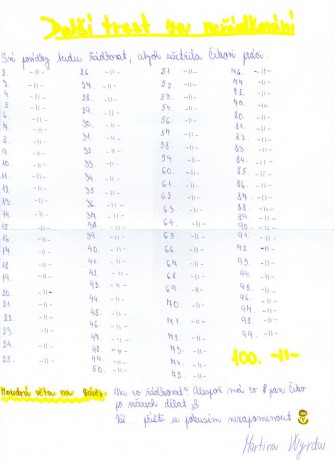 Další trest za neřádkování
Své povídky budu řádkovat, abych ušetřila Čikovi práci.
2. -11- 26. -11- 51. -11- 76. -11-
3. -11- 27. -11- 52. -11- 77. -11-
4. -11- 28. -11- 53. -11- 78. -11-
5. -11- 29. -11- 54. -11- 79. -11-
6. -11- 30. -11- 55. -11- 80. -11-
7. -11- 31. -11- 56. -11- 81. -11-
8. -11- 32. -11- 57. -11- 82. -11-
9. -11- 33. -11- 58. -11- 83. -11-
10. -11- 34. -11- 59. -11- 84. -11-
11. -11- 35. -11- 60. -11- 85. -11-
12. -11- 36. -11- 61. -11- 86. -11-
13. -11- 37. -11- 62. -11- 87. -11-
14. -11- 38. -11- 63. -11- 88. -11-
15. -11- 39. -11- 64. -11- 89. -11-
16. -11- 40. -11- 65. -11- 90. -11-
17. -11- 41. -11- 66. -11- 91. -11-
18. -11- 42. -11- 67. -11- 92. -11-
19. -11- 43. -11- 68. -11- 93. -11-
20. -11- 44. -11- 69. -11- 94. -11-
21. -11- 45. -11- 70. -11- 95. -11-
22. -11- 46. -11- 71. -11- 96. -11-
23. -11- 47. -11- 72. -11- 97. -11-
24. -11- 48. -11- 73. -11- 98. -11-
25. -11- 49. -11- 74. -11- 99. -11-
50. -11- 75. -11- 100. -11-
Moudrá věta na závěr: řádkovat? Alespoň má pan Čiko
po večerech co dělat
Už příště se pokusím nezapomenout
Martina